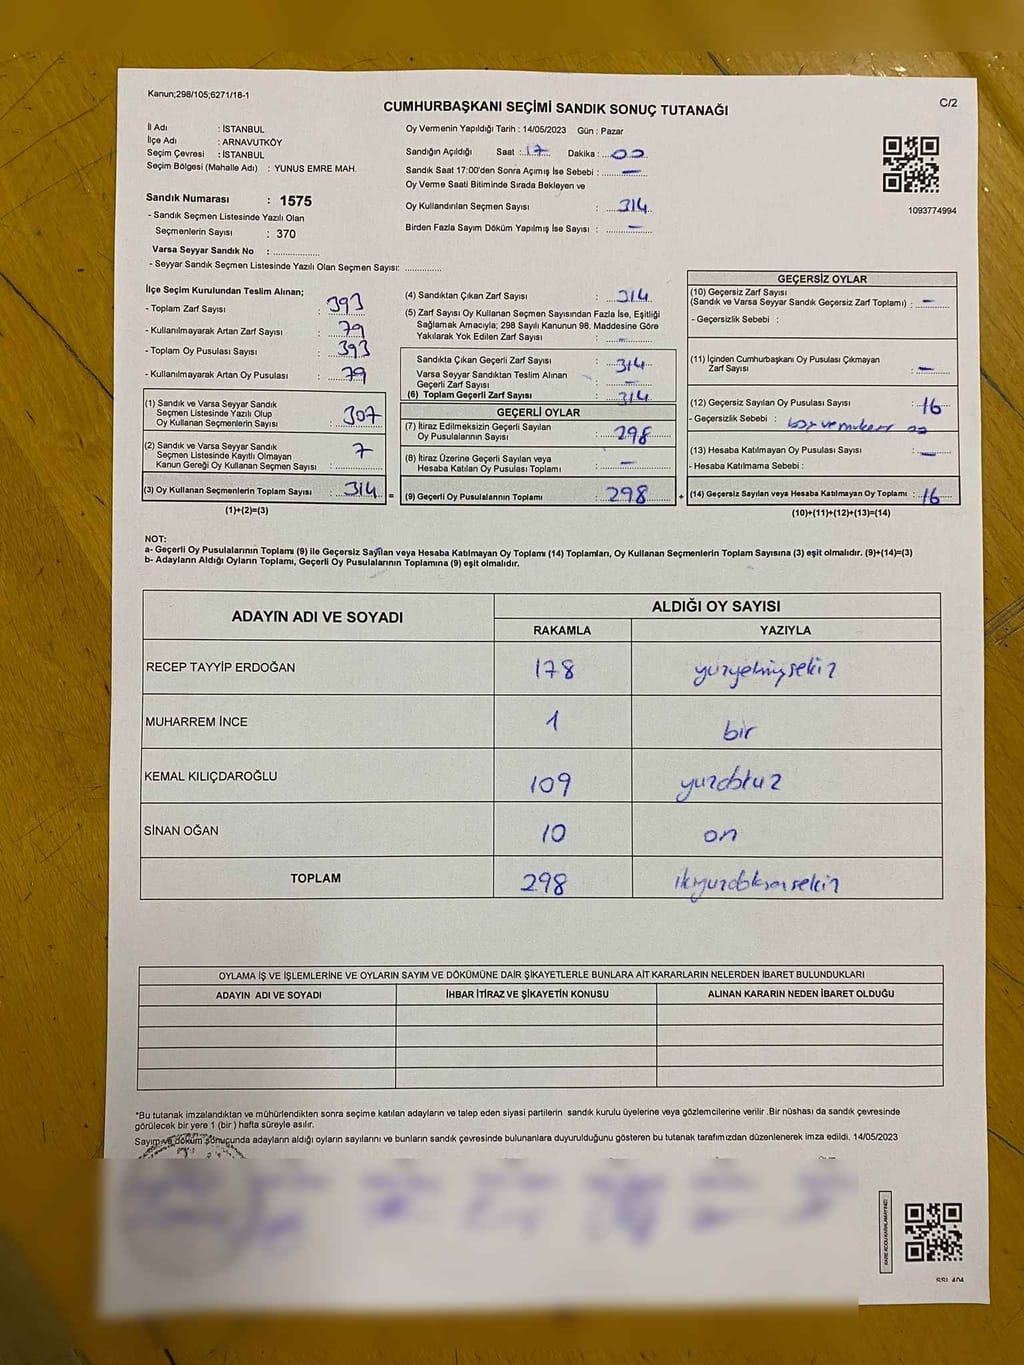 Kanun;298/105;6271/18-1
CUMHURBAŞKANI SEÇİMİ SANDIK SONUÇ TUTANAĞI
C/2
İl Adı : İSTANBUL
İlçe Adı : ARNAVUTKÖY
Seçim Çevresi : İSTANBUL
Seçim Bölgesi (Mahalle Adı) : YUNUS EMRE MAH.
Sandık Numarası : 1575
- Sandık Seçmen Listesinde Yazılı Olan
Seçmenlerin Sayısı : 370
Varsa Seyyar Sandık No : ..............
- Seyyar Sandık Seçmen Listesinde Yazılı Olan Seçmen Sayısı: ..............
Oy Vermenin Yapıldığı Tarih : 14/05/2023 Gün : Pazar
Sandığın Açıldığı Saat : 17 Dakika : 00
Sandık Saat 17:00'den Sonra Açımış İse Sebebi : —
Oy Verme Saati Bitiminde Sırada Bekleyen ve
Oy Kullandırılan Seçmen Sayısı : 314
Birden Fazla Sayım Döküm Yapılmış İse Sayısı : —
1093774994
İlçe Seçim Kurulundan Teslim Alınan;
- Toplam Zarf Sayısı : 393
- Kullanılmayarak Artan Zarf Sayısı : 79
- Toplam Oy Pusulası Sayısı : 393
- Kullanılmayarak Artan Oy Pusulası : 79
(1) Sandık ve Varsa Seyyar Sandık
Seçmen Listesinde Yazılı Olup
Oy Kullanan Seçmenlerin Sayısı : 307
(2) Sandık ve Varsa Seyyar Sandık
Seçmen Listesinde Kayıtlı Olmayan
Kanun Gereği Oy Kullanan Seçmen Sayısı : 7
(3) Oy Kullanan Seçmenlerin Toplam Sayısı : 314 =
(1)+(2)=(3)
(4) Sandıktan Çıkan Zarf Sayısı : 314
(5) Zarf Sayısı Oy Kullanan Seçmen Sayısından Fazla İse, Eşitliği
Sağlamak Amacıyla; 298 Sayılı Kanunun 98. Maddesine Göre
Yakılarak Yok Edilen Zarf Sayısı : —
Sandıkta Çıkan Geçerli Zarf Sayısı : 314
Varsa Seyyar Sandıktan Teslim Alınan
Geçerli Zarf Sayısı : —
(6) Toplam Geçerli Zarf Sayısı : 314
GEÇERLİ OYLAR
(7) İtiraz Edilmeksizin Geçerli Sayılan
Oy Pusulalarının Sayısı : 298
(8) İtiraz Üzerine Geçerli Sayılan veya
Hesaba Katılan Oy Pusulası Toplamı : —
(9) Geçerli Oy Pusulalarının Toplamı : 298 +
GEÇERSİZ OYLAR
(10) Geçersiz Zarf Sayısı
(Sandık ve Varsa Seyyar Sandık Geçersiz Zarf Toplamı) : —
- Geçersizlik Sebebi :
(11) İçinden Cumhurbaşkanı Oy Pusulası Çıkmayan
Zarf Sayısı : —
(12) Geçersiz Sayılan Oy Pusulası Sayısı : 16
- Geçersizlik Sebebi :
(13) Hesaba Katılmayan Oy Pusulası Sayısı : —
- Hesaba Katılmama Sebebi :
(14) Geçersiz Sayılan veya Hesaba Katılmayan Oy Toplamı : 16
(10)+(11)+(12)+(13)=(14)
NOT:
a- Geçerli Oy Pusulalarının Toplamı (9) ile Geçersiz Sayılan veya Hesaba Katılmayan Oy Toplamı (14) Toplamları, Oy Kullanan Seçmenlerin Toplam Sayısına (3) eşit olmalıdır. (9)+(14)=(3)
b- Adayların Aldığı Oyların Toplamı, Geçerli Oy Pusulalarının Toplamına (9) eşit olmalıdır.
ADAYIN ADI VE SOYADI ALDIĞI OY SAYISI
RAKAMLA YAZIYLA
RECEP TAYYİP ERDOĞAN 178 yüzyetmişsekiz
MUHARREM İNCE 1 bir
KEMAL KILIÇDAROĞLU 109 yuzdokuz
SİNAN OĞAN 10 on
TOPLAM 298 ikiyuzdoksansekiz
OYLAMA İŞ VE İŞLEMLERİNE VE OYLARIN SAYIM VE DÖKÜMÜNE DAİR ŞİKAYETLERLE BUNLARA AİT KARARLARIN NELERDEN İBARET BULUNDUKLARI
ADAYIN ADI VE SOYADI İHBAR İTİRAZ VE ŞİKAYETİN KONUSU ALINAN KARARIN NEDEN İBARET OLDUĞU
*Bu tutanak imzalandıktan ve mühürlendikten sonra seçime katılan adayların ve talep eden siyasi partilerin sandık kurulu üyelerine veya gözlemcilerine verilir .Bir nüshası da sandık çevresinde
görülecek bir yere 1 (bir ) hafta süreyle asılır.
Sayım ve döküm sonucunda adayların aldığı oyların sayılarını ve bunların sandık çevresinde bulunanlara duyurulduğunu gösteren bu tutanak tarafımızdan düzenlenerek imza edildi. 14/05/2023